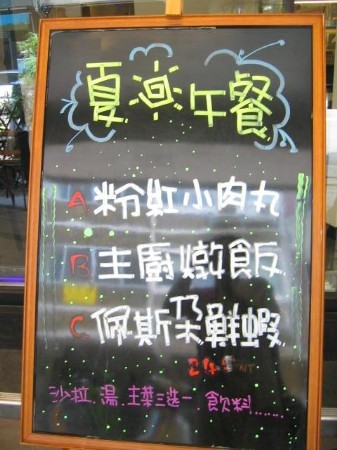 夏涼午餐
A 粉紅小肉丸
B 主廚燉飯
C 佩斯朵鮮蝦
NT
沙拉.湯.主菜三選一.飲料......